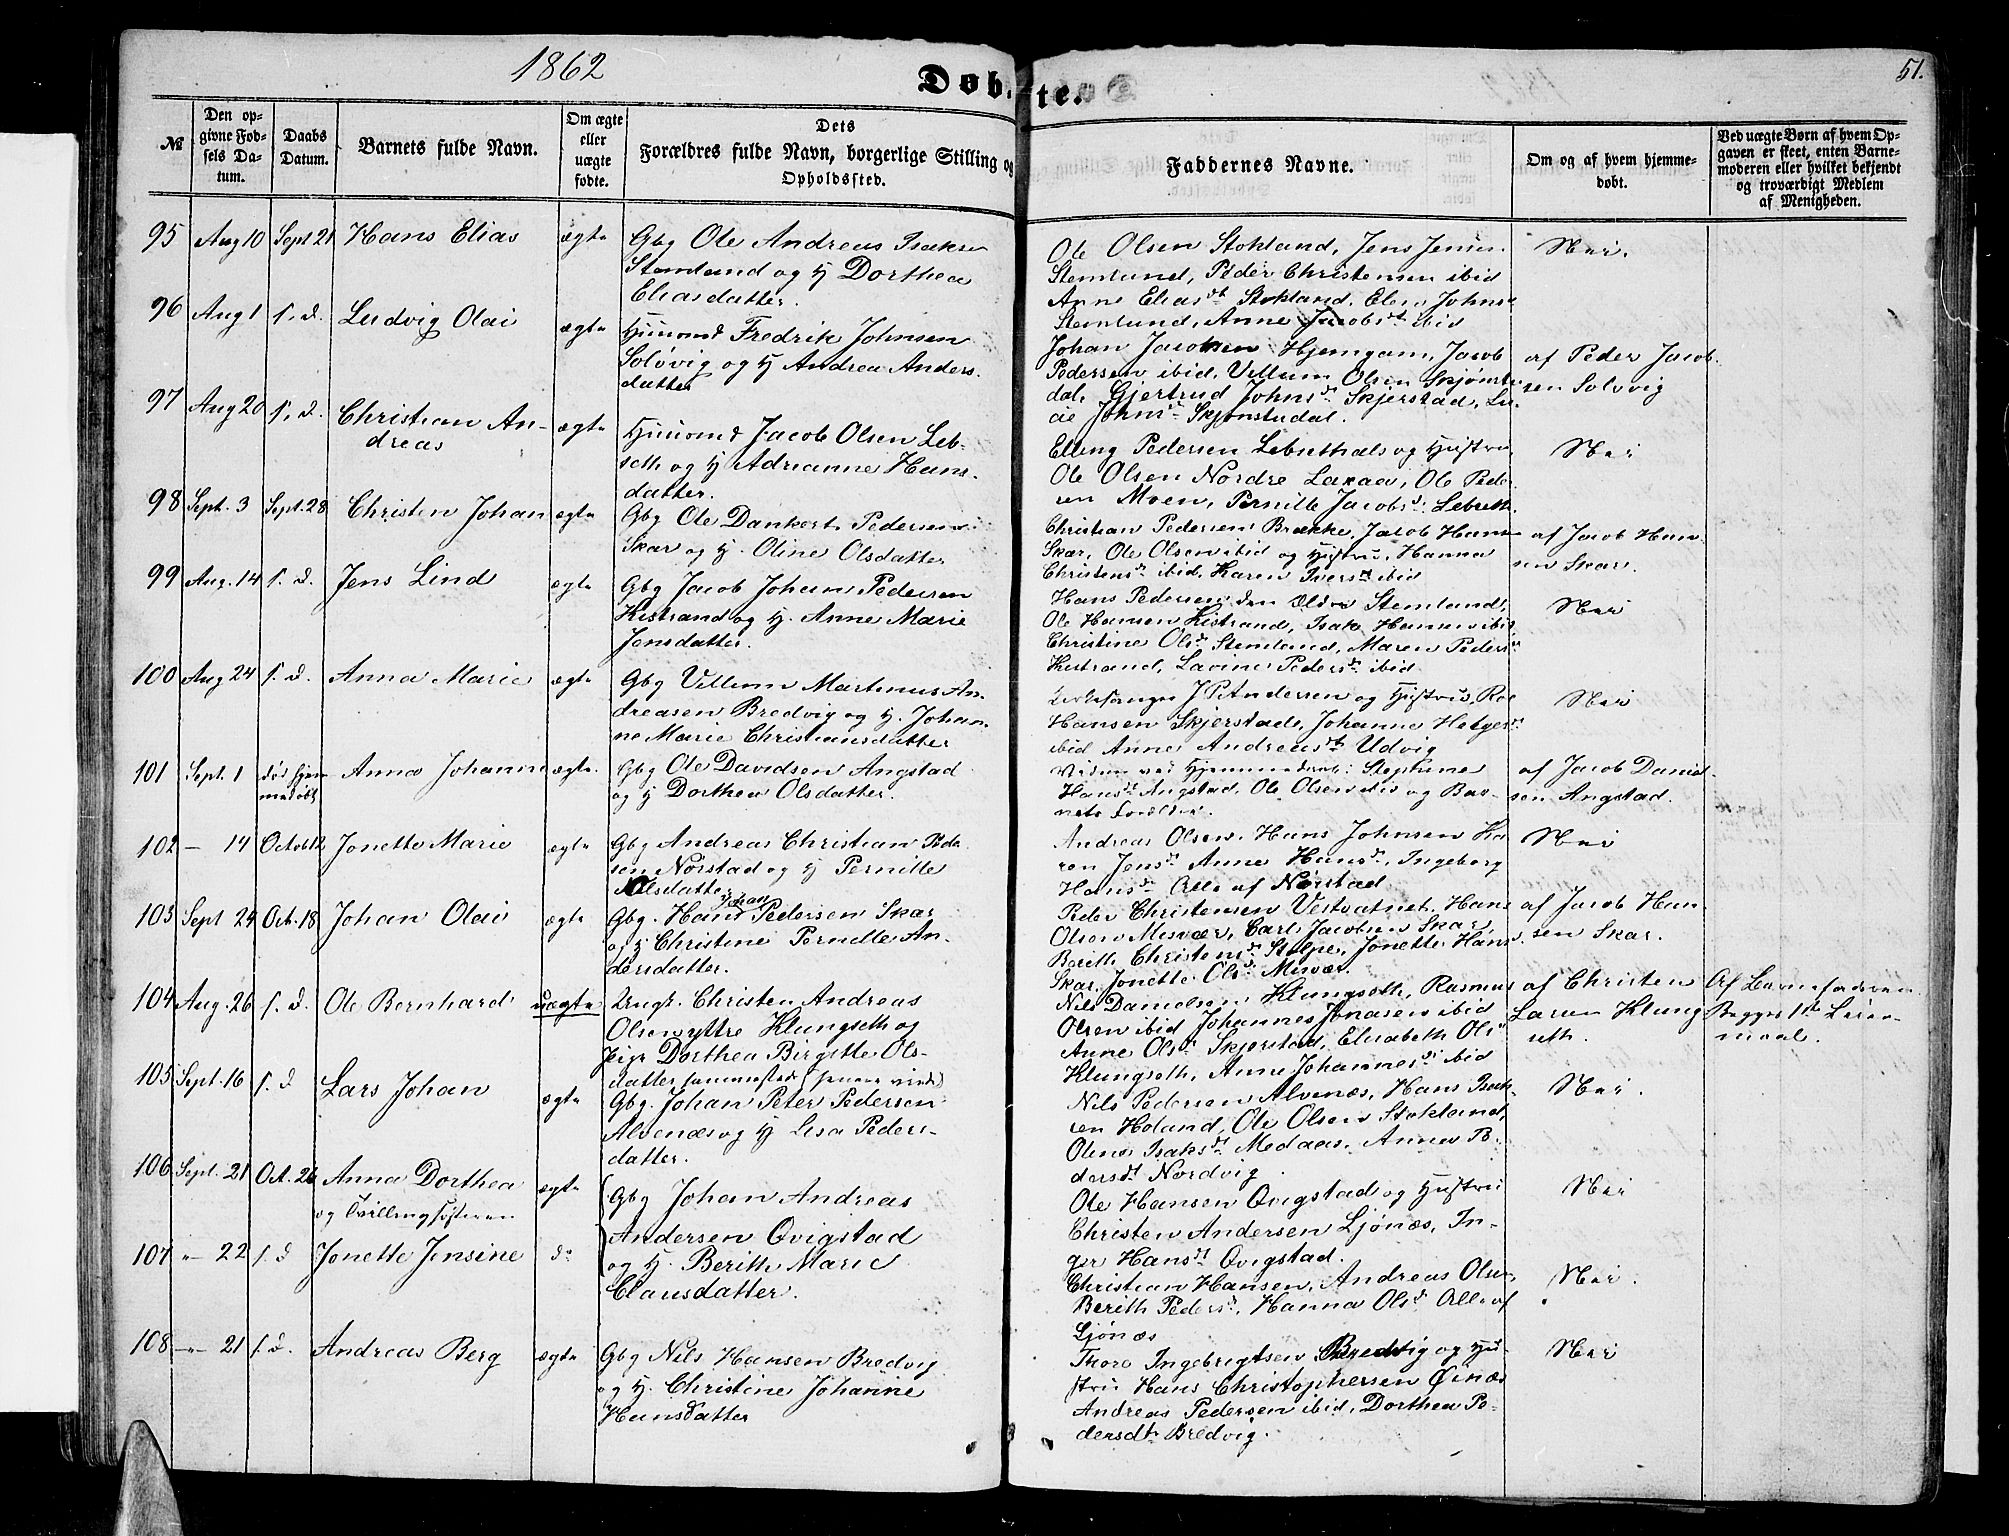 1862
51.
Døbte.
№
Den op-
givne Fød-
sels Da-
tum.
Daabs
Datum.
Barnets fulde Navn.
Om ægte
eller
uægte
fødte.
Dets
Forældres fulde Navn, borgerlige Stilling og
Opholdssted.
Faddernes Navne.
Om og af hvem hjemme-
døbt.
Ved uægte Børn af hvem Op-
gaven er skeet, enten Barne-
moderen eller hvilket bekjendt
og troværdigt Medlem
af Menigheden.
95 Aug 10 Sept 21 Hans Elias ægte
Gbg Ole Andreas Isaksen
Stemland og H Dorthea
Eliasdatter.
Ole Olsen Stokland, Jens Jensen
Stemlund, Peder Christensen ibid
Anne Eliasdt Stokland, Elen Johnsd
Stemlund, Anne Jacobsdt ibid
Nei.
96 Aug 1 s. d. Ludvig Olai ægte
Huusmd Fredrik Johnsen
Soløvig og H Andrea Anders-
datter
Johan Jacobsen Hjemgam, Jacob
Pedersen ibid, Villum Olsen Skjønstu-
dal, Gjertrud Johnsd Skjerstad, Lu-
cie Johnsd Skjønstudal.
af Peder Jacob-
sen Solvvig
97 Aug 20 s. d. Christian An-
dreas ægte
Huusmd Jacob Olsen Leb-
seth og H Adrianne Hans-
datter.
Elling Pedersen Lebsethals og Hustru
Ole Olsen Nordre Laxaa, Ole Peder-
sen Moen, Pernille Jacobsd. Lebseth.
Nei
98 Sept. 3 Sept. 28 Christen Johan ægte
Gbg Ole Dankert Pedersen
Skar og H. Oline Olsdatter
Christian Pedersen Brække, Jacob Hansen
Skar, Ole Olsen ibid og Hustru, Hanna
Christensd ibid, Karen Iversdt ibid
af Jacob Han-
sen Skar.
99 Aug. 14 s. d. Jens Lind ægte
Gbg Jacob Johan Pedersen
Kistrand og H. Anne Marie
Jensdatter.
Hans Pedersen den Ældre Stemland,
Ole Hansen Kistrand, Isak Hansen ibid
Christine Olsd Stemland, Maren Pedersd
Kistrand, Lavine Pedersd ibid
Nei
100 Aug 24 s. d. Anna Marie ægte
Gbg Villum Martinus An-
dreasen Bredvig og H. Johan-
ne Marie Christiansdatter
Kirkesanger J P Andersen og Hustru, Roe
Hansen Skjerstad, Johanna Holgersdt
ibid Anne Andreasdt Udvig
Nei
101 Sept. 1 død hjem-
medøbt Anna Johanne ægte.
Gbg Ole Davidsen Angstad
og H Dorthea Olsdatter.
Vidner ved Hjemmedaab: Stephine
Hansdt Angstad, Ole Olsen ibid og Bar-
nets Forældre.
af Jacob Daniel-
sen Angstad.
102 — 14 Octob 12 Jonette Marie ægte
Gbg Andreas Christian Peder-
sen Nørstad og H Pernille
Nilsdatter
Andreas Olsen, Hans Johnsen Ka-
ren Jensd Anne Hansd, Ingeborg
Hansd Alle af Nørstad
Nei
103 Sept 24 Oct. 18 Johan Olai ægte
Gbg. Hans Johan Pedersen Skar
og H Christine Pernille An-
dersdatter.
Peder Christensen Vestvatnet, Hans
Olsen Misvær, Carl Jacobsen Skar,
Berith Christensdt Stolpe, Jonette Hansd.
Skar, Jonette Olsd Misvær.
af Jacob Han-
sen Skar.
104 Aug. 26 s. d. Ole Bernhard uægte
Ungk. Christen Andreas
Olsen yttre Klungseth og
Pige Dorthea Birgitte Ols-
datter sammested
Nils Danielsen Klungseth, Rasmus
Olsen ibid Johannes Jonasen ibid
Anne Olsd Skjerstad, Elisabeth Olsd
Klungseth, Anne Johannesd ibid
af Christen
Larsen Klung-
seth.
Af Barnefaderen
Begges 1ste Leier-
maal.
105 Sept. 16 s. d Lars Johan ægte
Gbg. Johan Peter Pedersen
Alvenæs og H Lesa Peders-
datter.
Nils Pedersen Alvenæs, Hans Isak-
sen Holand, Ole Olsen Stokland,
Olina Isaksdt Medaas, Anna Pe-
dersdt Nordvig
Nei.
106 Sept. 21 Oct. 26 Anna Dorthea
og Tvillingsøsteren ægte
Gbg Johan Andreas
Andersen Qvigstad
og H. Berith Marie
Clausdatter.
Ole Hansen Qvigstad og Hustru
Christen Andersen Ljønæs, In-
ger Hansdt Qvigstad.
Nei
107 " 22 s. d Jonette Jensine do
Christian Hansen, Andreas Olsen,
Berith Pedersd, Hanna Olsd Alle af
Ljønæs
Nei.
108 — 21 s. d. Andreas Berg ægte
Gbg Nils Hansen Bredvig
og H. Christine Johanne
Hansdatter
Thore Ingebrigtsen Bredvig og Hu-
stru Hans Christophersen Øinæs
Andreas Pedersen ibid, Dorthea Pe-
dersdt Bredvig.
Nei